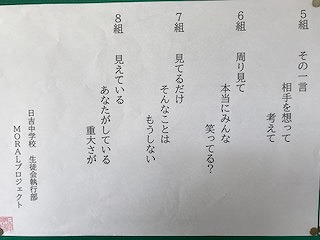 5組 その一言
相手を想って
考えて
6組 周り見て
本当にみんな
笑ってる?
7組 見てるだけ
そんなことは
もうしない
8組 見えている
あなたがしている
重大さが
日吉中学校 生徒会執行部
MORALプロジェクト